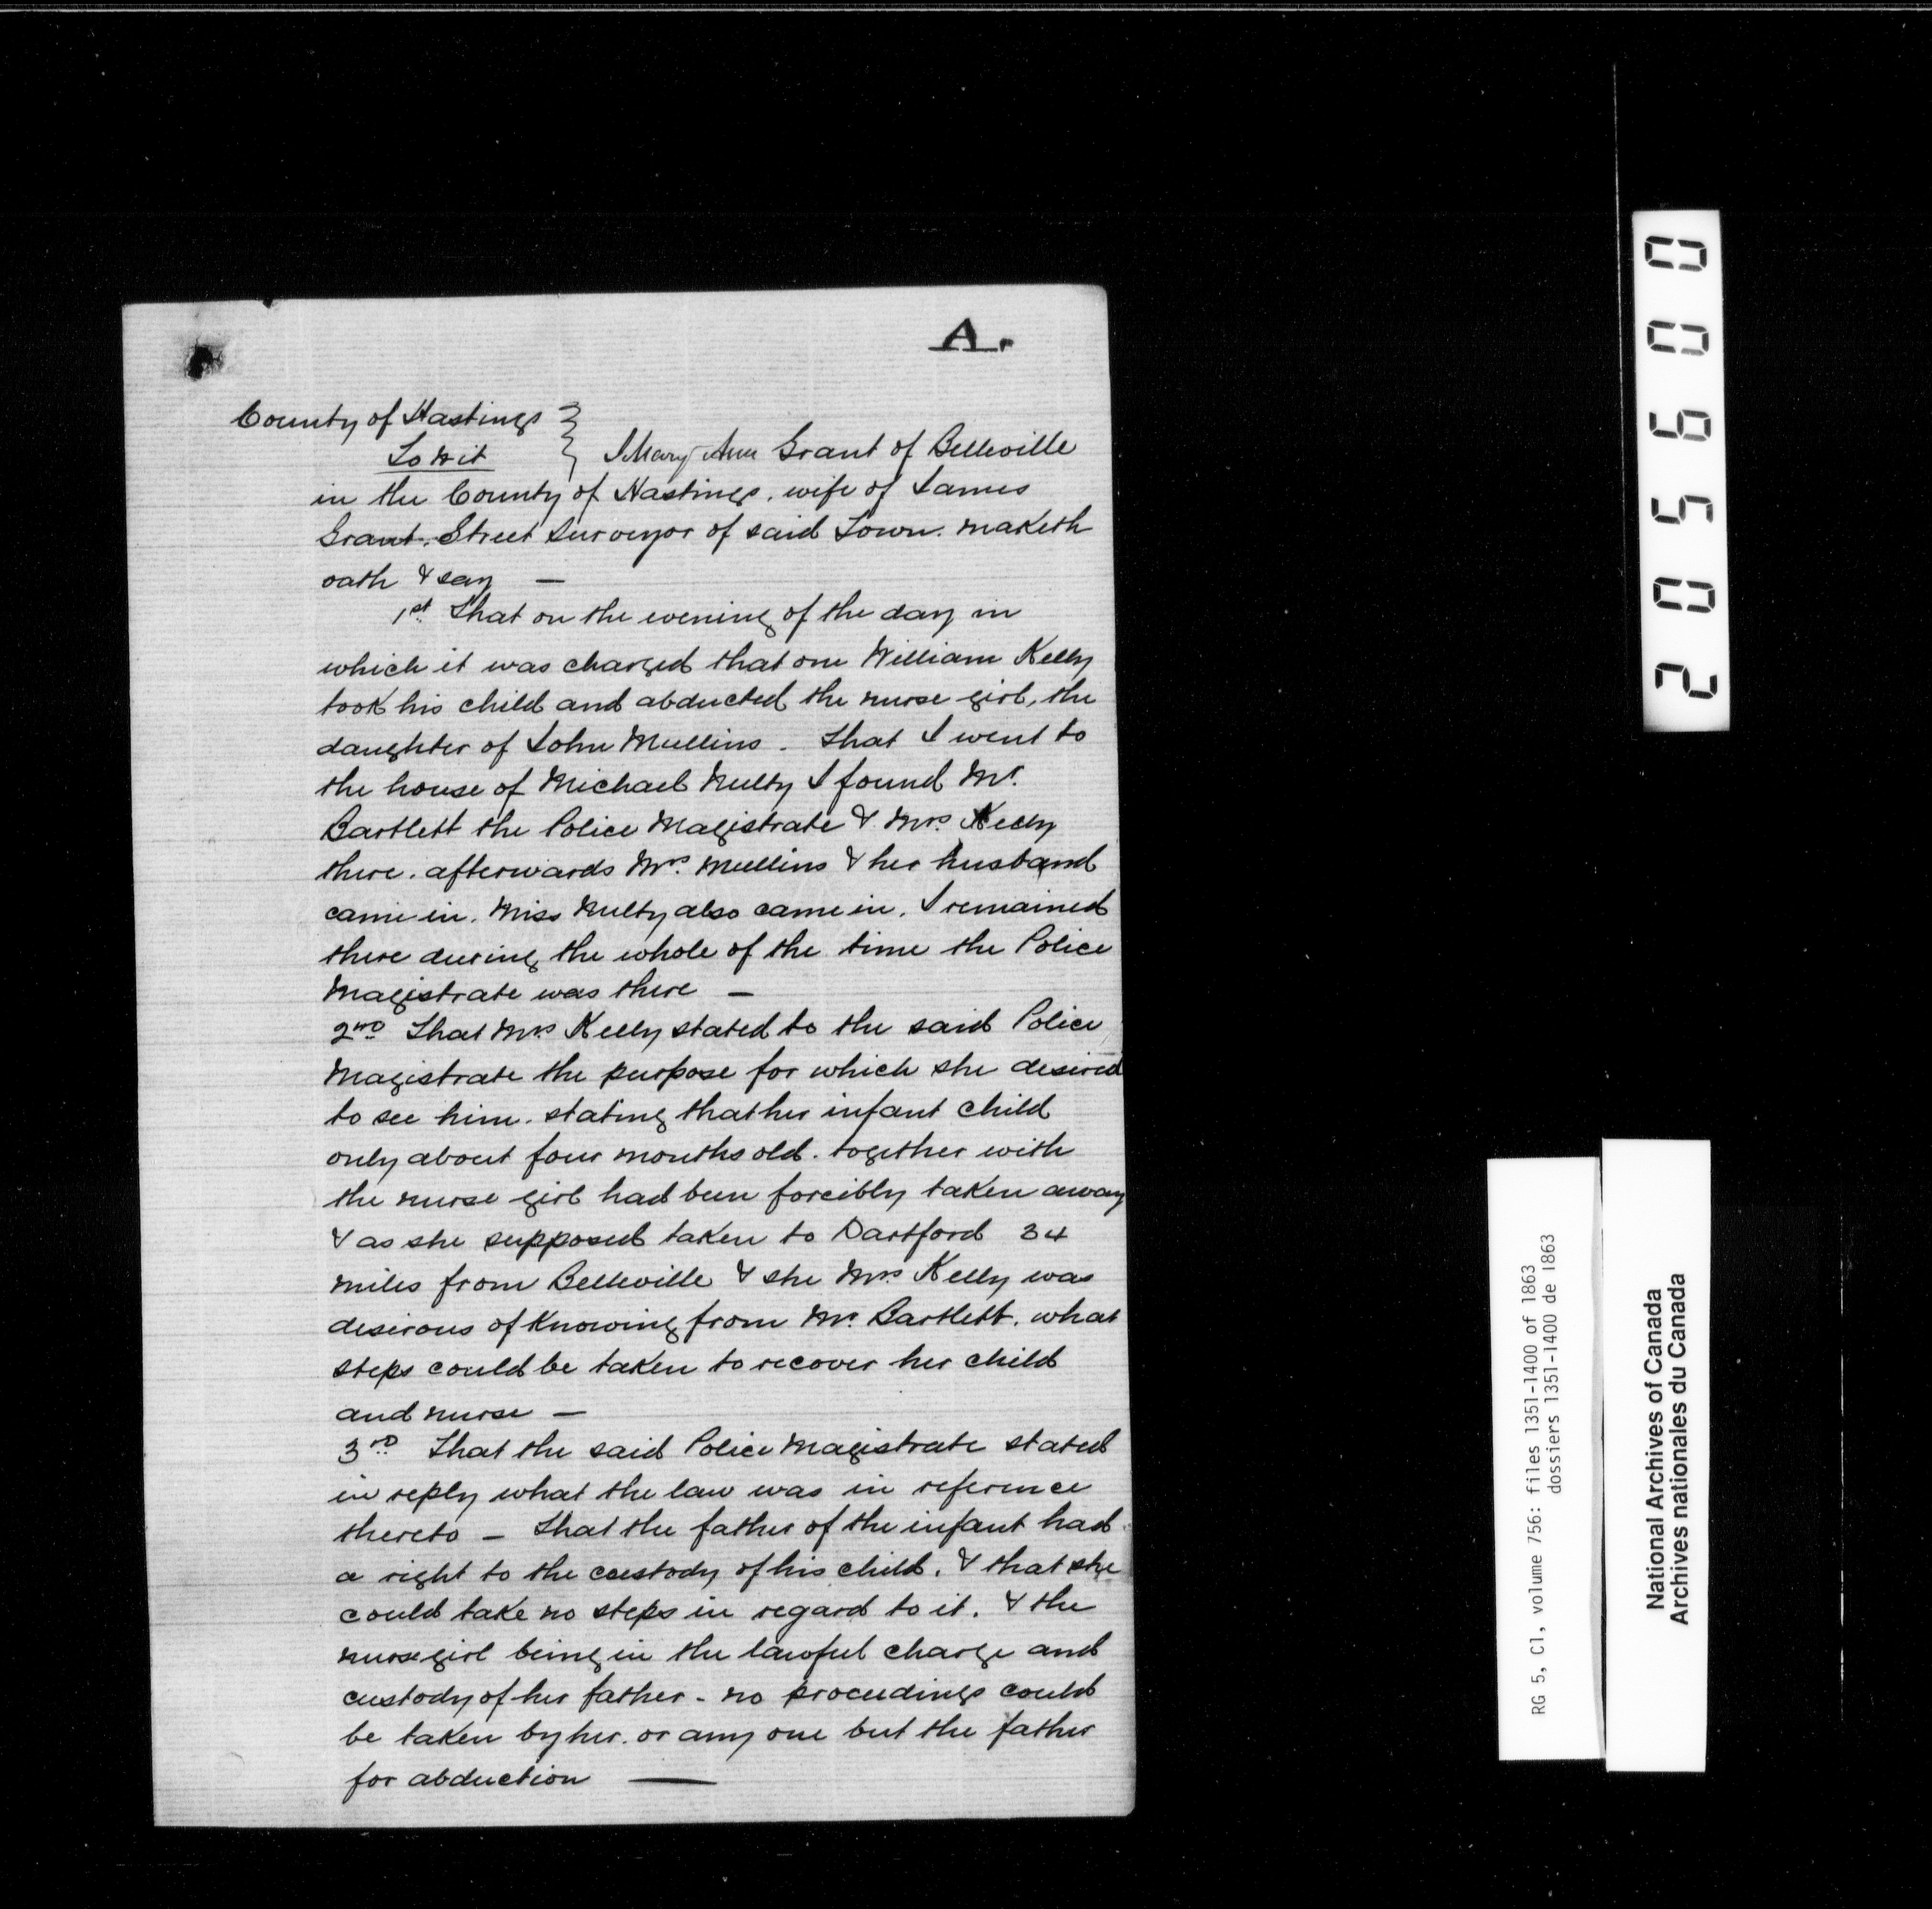 A.
County of Hastings }
To wit } I Mary Ann Grant of Belleville
in the County of Hastings, wife of James
Grant, Street Surveyor of said Town. maketh
oath & say —
1st. That on the evening of the day in
which it was charged that one William Kelly
took his child and abducted the nurse girl, the
daughter of John Mullins - that I went to
the house of Michael Nulty I found Mr.
Bartlett the Police Magistrate & Mrs. Kelly
there. afterwards Mrs. Mullins & her husband
came in. Miss Nulty also came in. I remained
there during the whole of the time the Police
Magistrate was there —
2nd That Mrs Kelly stated to the said Police
Magistrate the purpose for which she desired
to see him. stating that her infant child
only about four months old. together with
the nurse girl had been forcibly taken away
& as she supposed taken to Dartford 34
miles from Belleville & she Mrs Kelly was
desirous of knowing from Mr. Bartlett. what
steps could be taken to recover her child
and nurse —
3rd That the said Police Magistrate stated
in reply what the law was in reference
thereto — that the father of the infant had
a right to the custody of his child. & that she
could take no steps in regard to it. & the
nurse girl being in the lawful charge and
custody of her father - no proceedings could
be taken by her. or any one but the father
for abduction —
205600
RG 5, C1, volume 756: files 1351-1400 of 1863
dossiers 1351-1400 de 1863
National Archives of Canada
Archives nationales du Canada